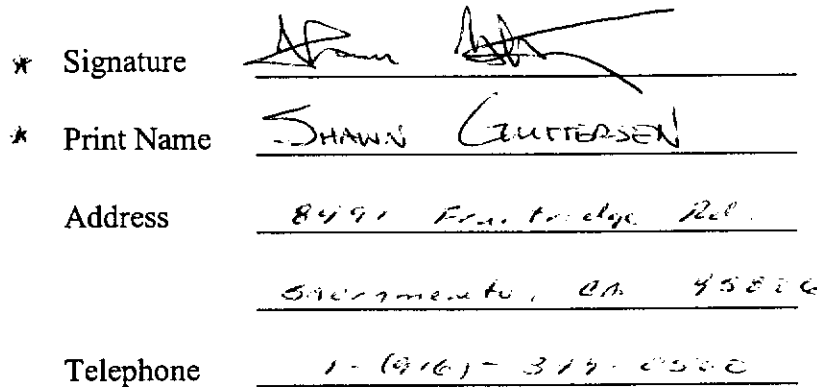 * Signature
* Print Name SHAWN GUTTERSEN
Address 8491 Fruitridge Rd.
Sacramento, CA
Telephone 1-(916)-